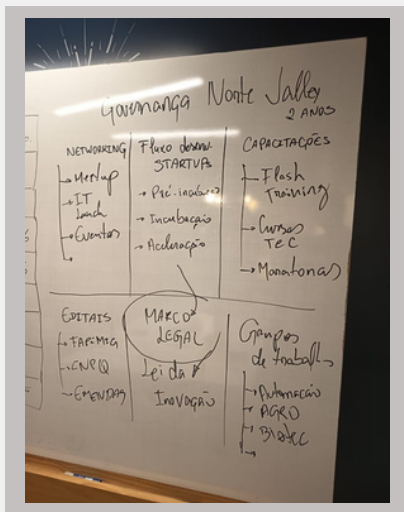 Governança Norte Valley
2 ANOS
NETWORKING
Meetup
IT
Lunch
Eventos
Fluxo desenv.
STARTUPS
Pré-incubação
Incubação
Aceleração
CAPACITAÇÕES
Flash
Training
Cursos
TEC
Maratonas
EDITAIS
FAPEMIG
CNPQ
EMENDAS
MARCO
LEGAL
Lei da
INOVAÇÃO
Grupos
de trabalho
Automação
AGRO
BIOTEC